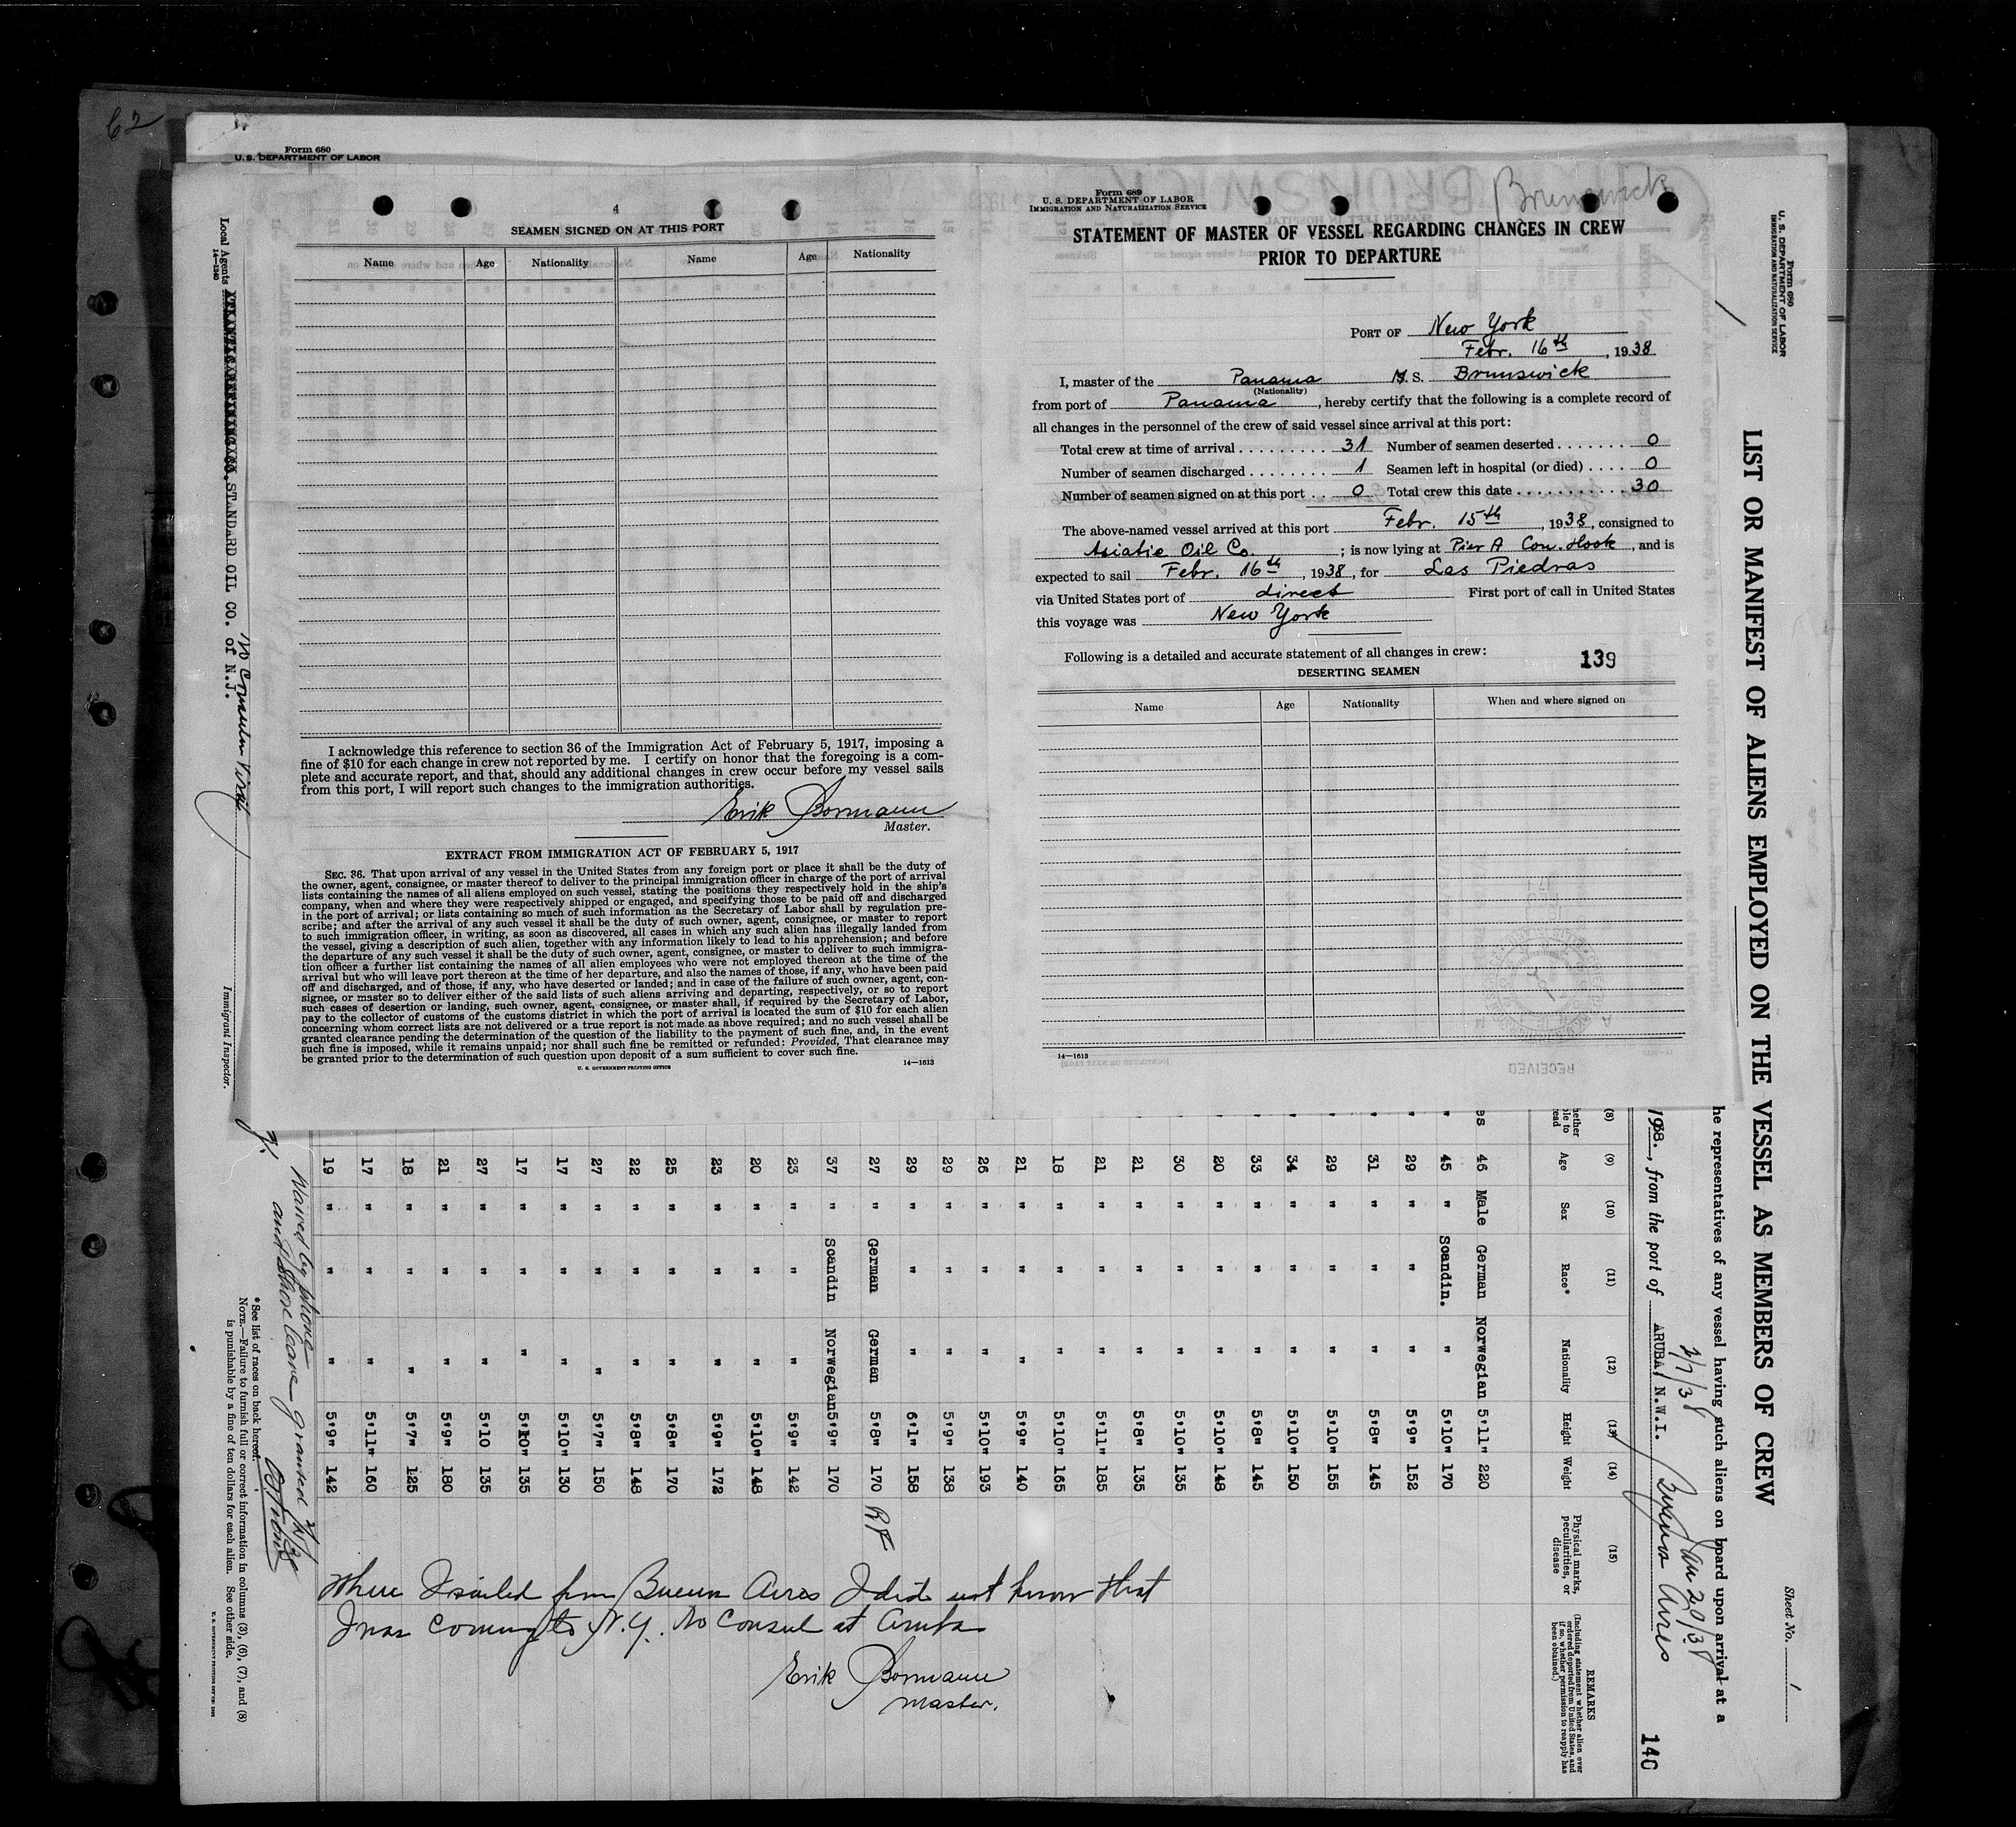 62
Form 680
U. S. DEPARTMENT OF LABOR
4
SEAMEN SIGNED ON AT THIS PORT
Name Age Nationality Name Age Nationality
I acknowledge this reference to section 36 of the Immigration Act of February 5, 1917, imposing a
fine of $10 for each change in crew not reported by me. I certify on honor that the foregoing is a com-
plete and accurate report, and that, should any additional changes in crew occur before my vessel sails
from this port, I will report such changes to the immigration authorities.
Erik Bormann
Master.
EXTRACT FROM IMMIGRATION ACT OF FEBRUARY 5, 1917
SEC. 36. That upon arrival of any vessel in the United States from any foreign port or place it shall be the duty of
the owner, agent, consignee, or master thereof to deliver to the principal immigration officer in charge of the port of arrival
lists containing the names of all aliens employed on such vessel, stating the positions they respectively hold in the ship's
company, when and where they were respectively shipped or engaged, and specifying those to be paid off and discharged
in the port of arrival; or lists containing so much of such information as the Secretary of Labor shall by regulation pre-
scribe; and after the arrival of any such vessel it shall be the duty of such owner, agent, consignee, or master to report
to such immigration officer, in writing, as soon as discovered, all cases in which any such alien has illegally landed from
the vessel, giving a description of such alien, together with any information likely to lead to his apprehension; and before
the departure of any such vessel it shall be the duty of such owner, agent, consignee, or master to deliver to such immigra-
tion officer a further list containing the names of all alien employees who were not employed thereon at the time of the
arrival but who will leave port thereon at the time of her departure, and also the names of those, if any, who have been paid
off and discharged, and of those, if any, who have deserted or landed; and in case of the failure of such owner, agent, con-
signee, or master so to deliver either of the said lists of such aliens arriving and departing, respectively, or so to report
such cases of desertion or landing, such owner, agent, consignee, or master shall, if required by the Secretary of Labor,
pay to the collector of customs of the customs district in which the port of arrival is located the sum of $10 for each alien
concerning whom correct lists are not delivered or a true report is not made as above required; and no such vessel shall be
granted clearance pending the determination of the question of the liability to the payment of such fine, and, in the event
such fine is imposed, while it remains unpaid; nor shall such fine be remitted or refunded: Provided, That clearance may
be granted prior to the determination of such question upon deposit of a sum sufficient to cover such fine.
U. S. GOVERNMENT PRINTING OFFICE 14—1613
Form 689
U. S. DEPARTMENT OF LABOR
IMMIGRATION AND NATURALIZATION SERVICE
Brunswick
STATEMENT OF MASTER OF VESSEL REGARDING CHANGES IN CREW
PRIOR TO DEPARTURE
PORT OF New York
Febr. 16th, 1938
I, master of the Panama M. S. Brunswick
(Nationality)
from port of Panama, hereby certify that the following is a complete record of
all changes in the personnel of the crew of said vessel since arrival at this port:
Total crew at time of arrival 31 Number of seamen deserted 0
Number of seamen discharged 1 Seamen left in hospital (or died) 0
Number of seamen signed on at this port 0 Total crew this date 30
The above-named vessel arrived at this port Febr. 15th, 1938, consigned to
Asiatic Oil Co. ; is now lying at Pier A Con. Hook, and is
expected to sail Febr. 16th, 1938, for Las Piedras
via United States port of direct First port of call in United States
this voyage was New York
Following is a detailed and accurate statement of all changes in crew:
139
DESERTING SEAMEN
Name Age Nationality When and where signed on
14—1613
RECEIVED
Form 680
U. S. DEPARTMENT OF LABOR
IMMIGRATION AND NATURALIZATION SERVICE
Sheet No. 1
LIST OR MANIFEST OF ALIENS EMPLOYED ON THE VESSEL AS MEMBERS OF CREW
he representatives of any vessel having such aliens on board upon arrival at a
1938., from the port of ARUBA, N.W.I. Buenos Aires
2/7/38
Jan 20/38
140
(8) (9) (10) (11) (12) (13) (14) (15)
Age Sex Race* Nationality Height Weight Physical marks, peculiarities, or disease
REMARKS
(Including statement whether alien ever ordered deported from United States, and if so, whether permission to reapply has been obtained.)
es 46 Male German Norwegian 5'11" 220
" 45 " Scandin. " 5'10" 170
29 " " " 5'9" 152
31 " " " 5'8" 145
29 " " " 5'10" 155
34 " " " 5'10" 150
33 " " " 5'8" 145
20 " " " 5'10" 148
30 " " " 5'10" 135
21 " " " 5'8" 135
21 " " " 5'11" 185
18 " " " 5'10" 165
21 " " " 5'9" 140
26 " " " 5'10" 193
29 " " " 5'9" 138
29 " " " 6'1" 158
27 " German German 5'8" 170 RF
37 " Scandin Norwegian 5'9" 170
23 " " " 5'9" 142
20 " " " 5'10" 148
23 " " " 5'9" 172
25 " " " 5'8" 170
22 " " " 5'8" 148
27 " " " 5'7" 150
17 " " " 5'10" 130
17 " " " 5'10" 135
27 " " " 5'10 135
21 " " " 5'9" 180
18 " " " 5'7" 125
17 " " " 5'11" 160
19 " " " 5'9" 142
When I sailed from Buenos Aires I did not know that
I was coming to N.Y. No Consul at Aruba
Erik Bormann
Master.
Waived by phone
and Shore leave granted
*See list of races on back hereof.
NOTE.—Failure to furnish full or correct information in columns (3), (6), (7), and (8)
is punishable by a fine of ten dollars for each alien. See other side.
Local Agents STANDARD OIL CO. of N.J.
14-1240
No Consular Visa
Immigrant Inspector.